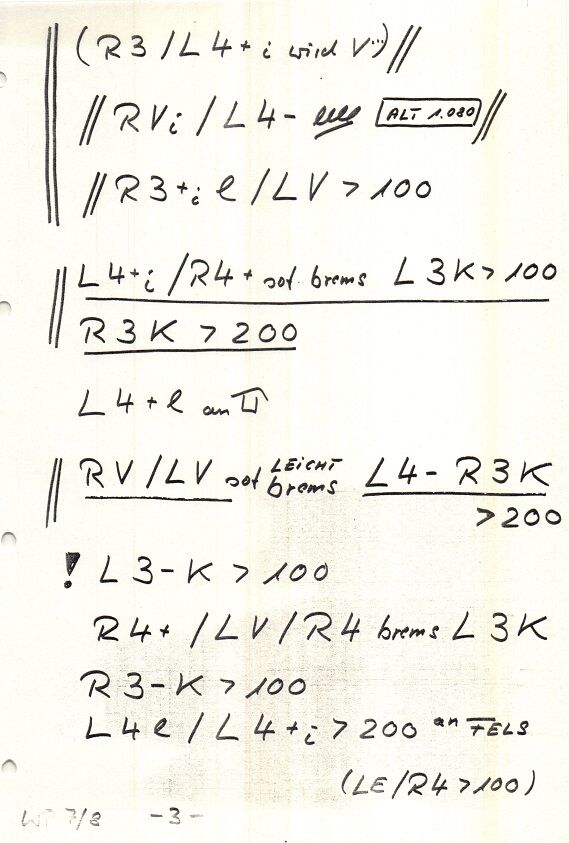 (R3/L4+ i wird V")//
//RVi/L4- ALT 1.080//
//R3+i l/LV>100
//L4+i/R4+ sot brems L3K>100
R3K>200
L4+l an
//RV/LV sot LEICHT brems L4- R3K
>200
! L3-K>100
R4+/LV/R4 brems L3K
R3-K>100
L4l/L4+i>200 an FELS
(LE/R4>100)
WP 7/8 -3-